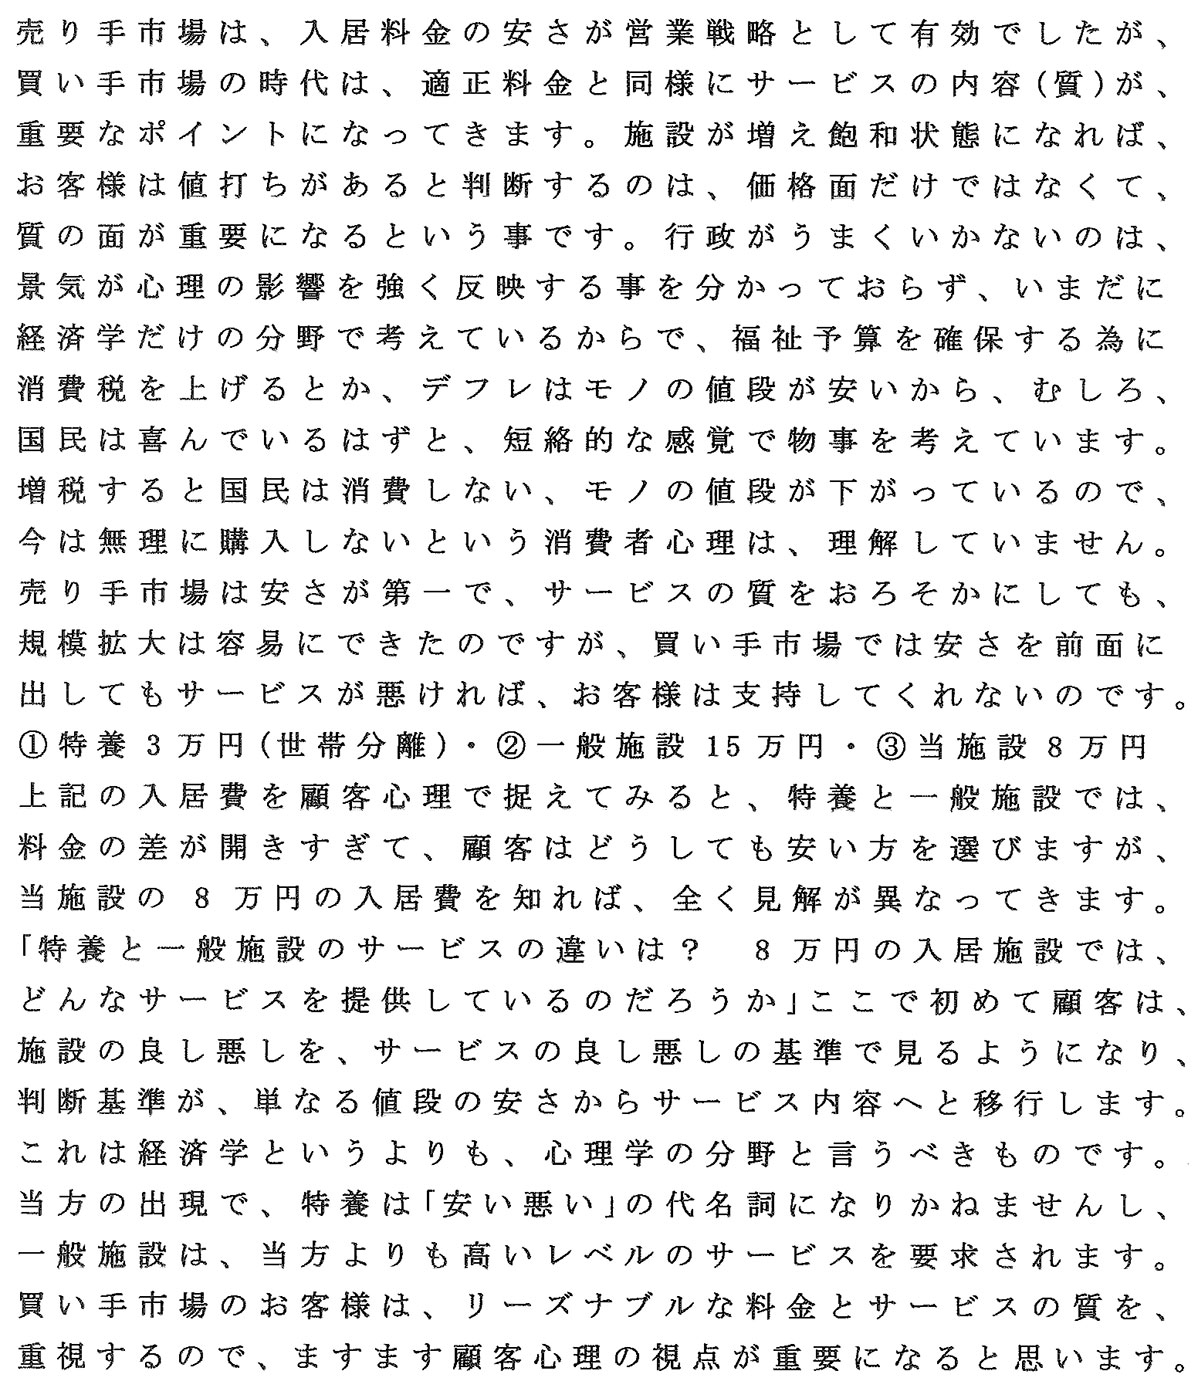 売り手市場は、入居料金の安さが営業戦略として有効でしたが、
買い手市場の時代は、適正料金と同様にサービスの内容(質)が、
重要なポイントになってきます。施設が増え飽和状態になれば、
お客様は値打ちがあると判断するのは、価格面だけではなくて、
質の面が重要になるという事です。行政がうまくいかないのは、
景気が心理の影響を強く反映する事を分かっておらず、いまだに
経済学だけの分野で考えているからで、福祉予算を確保する為に
消費税を上げるとか、デフレはモノの値段が安いから、むしろ、
国民は喜んでいるはずと、短絡的な感覚で物事を考えています。
増税すると国民は消費しない、モノの値段が下がっているので、
今は無理に購入しないという消費者心理は、理解していません。
売り手市場は安さが第一で、サービスの質をおろそかにしても、
規模拡大は容易にできたのですが、買い手市場では安さを前面に
出してもサービスが悪ければ、お客様は支持してくれないのです。
①特養3万円(世帯分離)・②一般施設15万円・③当施設8万円
上記の入居費を顧客心理で捉えてみると、特養と一般施設では、
料金の差が開きすぎて、顧客はどうしても安い方を選びますが、
当施設の 8 万円の入居費を知れば、全く見解が異なってきます。
「特養と一般施設のサービスの違いは? 8 万円の入居施設では、
どんなサービスを提供しているのだろうか」ここで初めて顧客は、
施設の良し悪しを、サービスの良し悪しの基準で見るようになり、
判断基準が、単なる値段の安さからサービス内容へと移行します。
これは経済学というよりも、心理学の分野と言うべきものです。
当方の出現で、特養は「安い悪い」の代名詞になりかねませんし、
一般施設は、当方よりも高いレベルのサービスを要求されます。
買い手市場のお客様は、リーズナブルな料金とサービスの質を、
重視するので、ますます顧客心理の視点が重要になると思います。